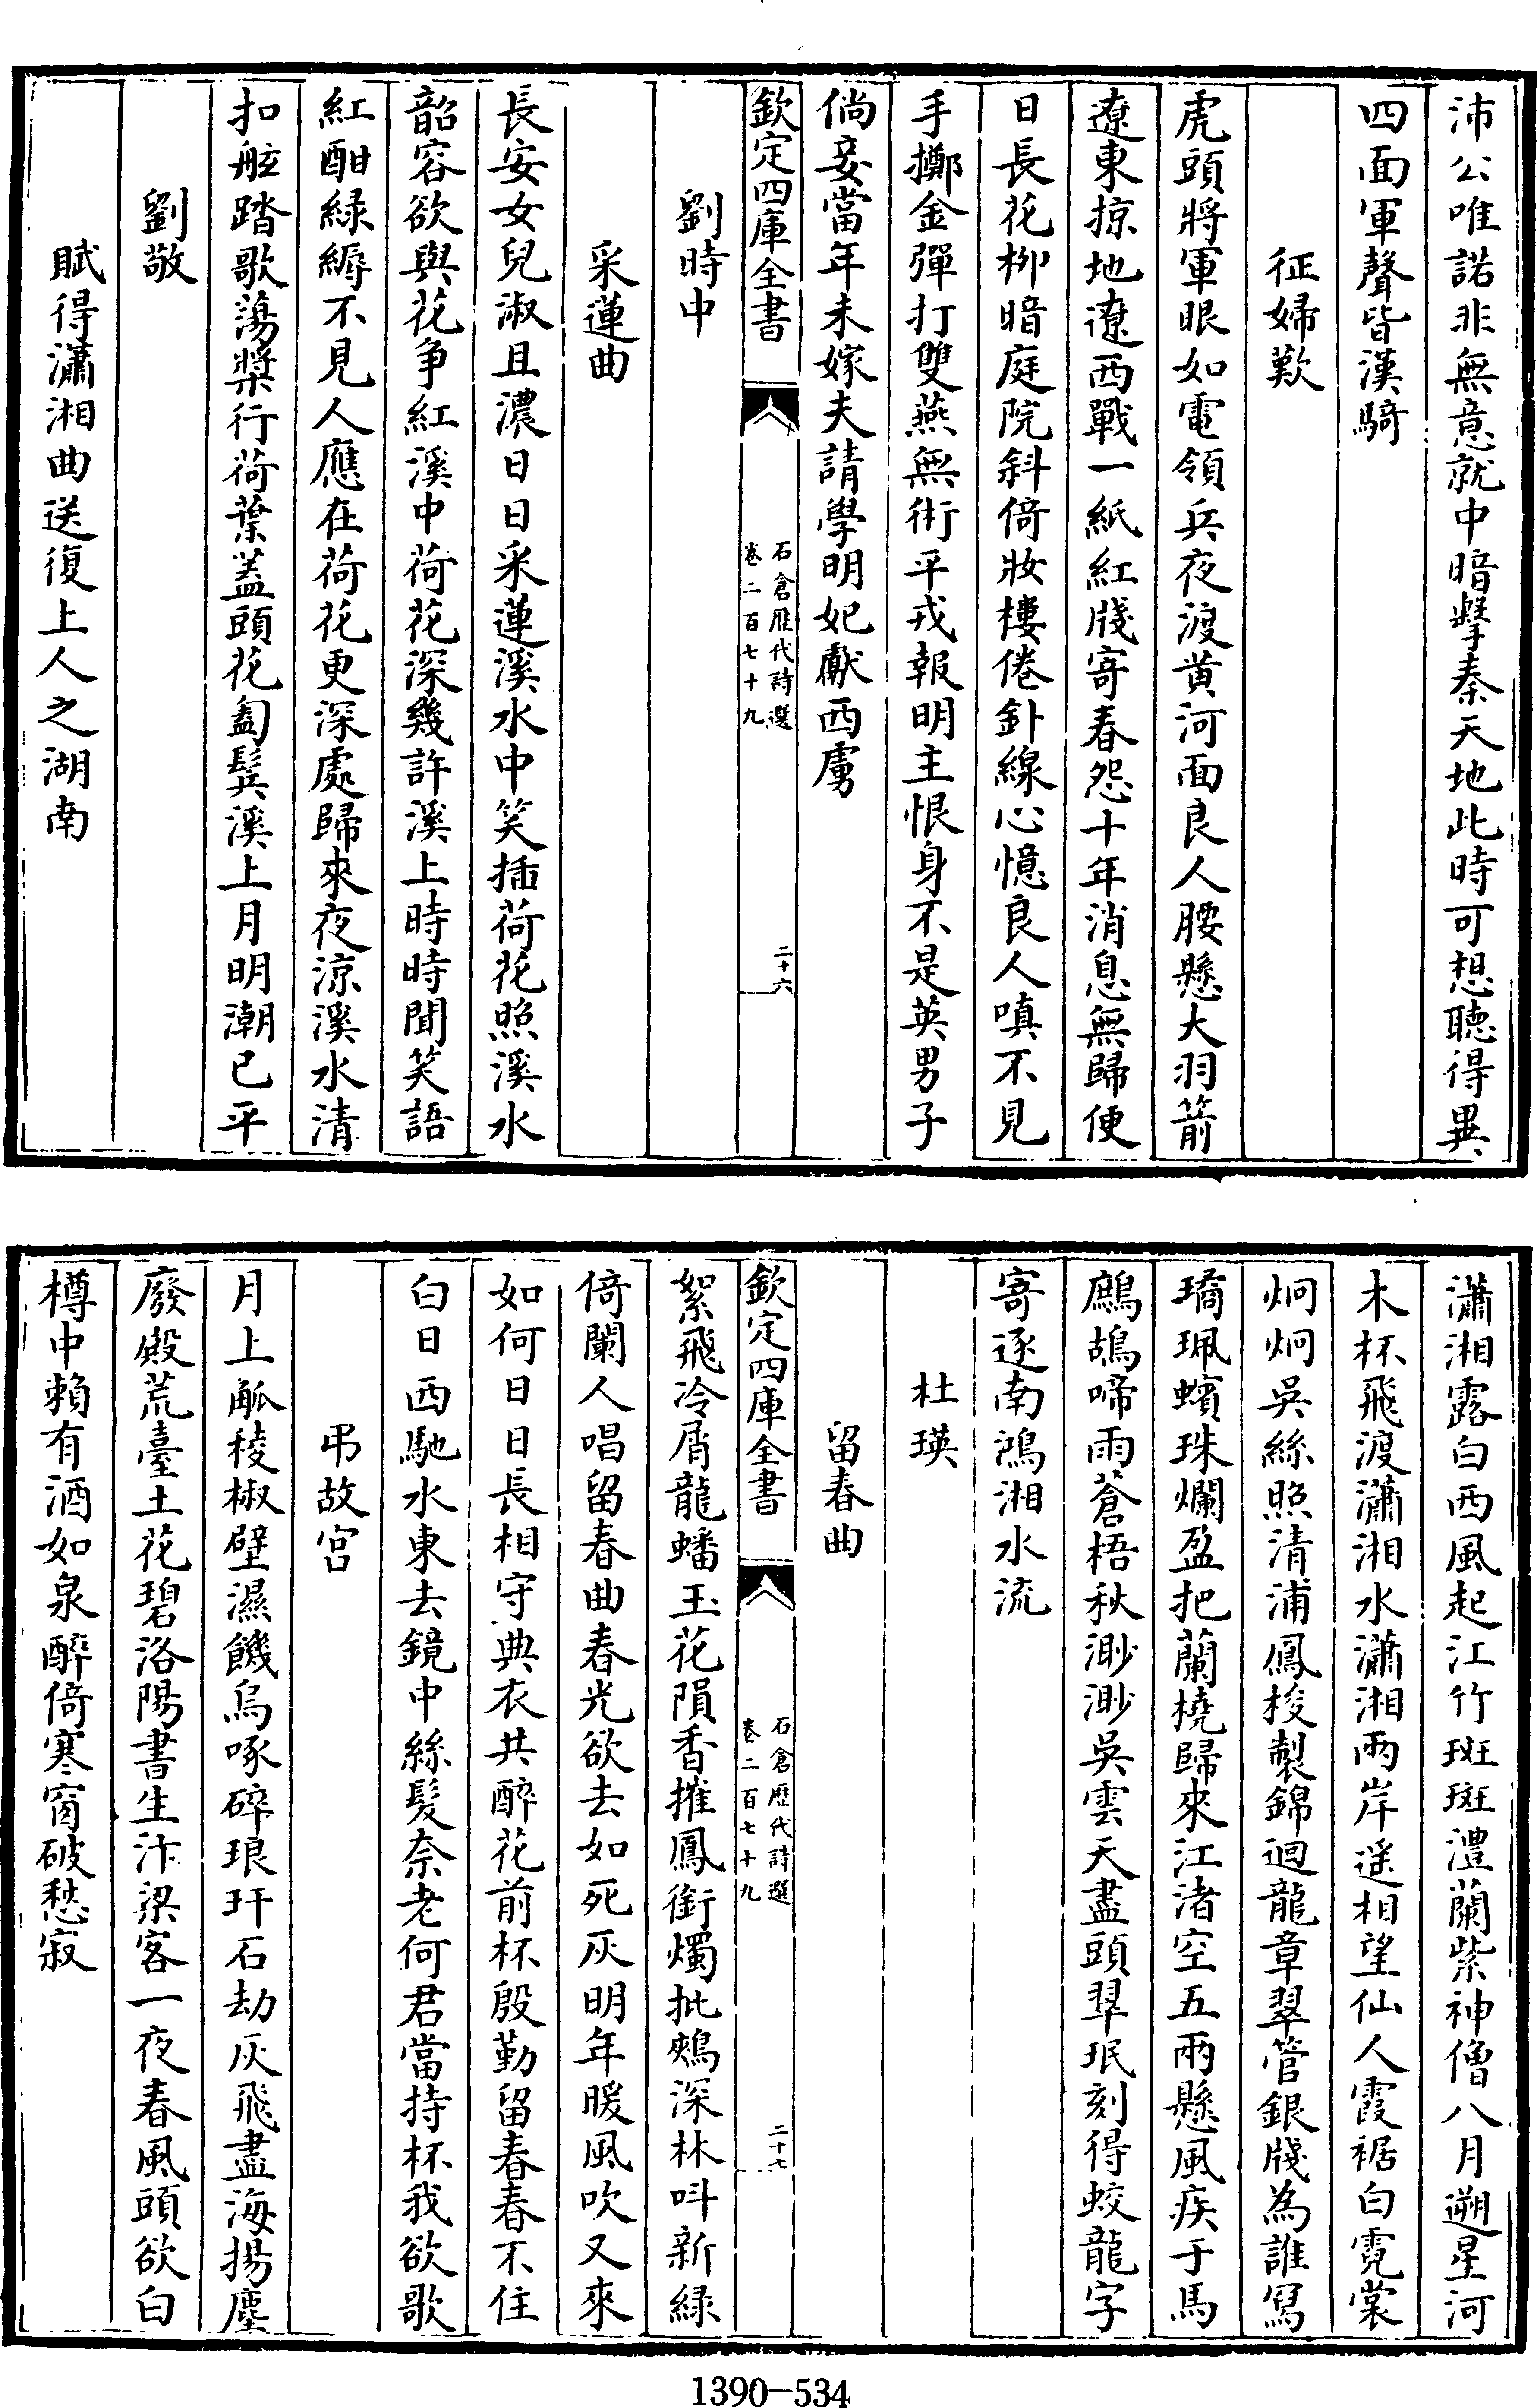 沛公唯諾非無意就中暗擊秦天地此時可想聽得異
四面軍聲皆漢騎
征婦歎
虎頭將軍眼如電領兵夜渡黄河面良人腰懸大羽箭
遼東掠地遼西戰一紙紅牋寄春怨十年消息無歸便
日長花柳暗庭院斜倚妝樓倦針線心憶良人嗔不見
手擲金彈打雙燕無術平戎報明主恨身不是英男子
倘妾當年未嫁夫請學明妃獻西虜
欽定四庫全書
石倉歷代詩選
卷二百七十九
二十六
劉時中
采蓮曲
長安女兒淑且濃日日采蓮溪水中笑插荷花照溪水
韶容欲與花争紅溪中荷花深幾許溪上時時聞笑語
紅酣緑縟不見人應在荷花更深處歸來夜涼溪水清
扣舷踏歌蕩槳行荷葉葢頭花匎鬂溪上月明潮已平
劉敬
賦得瀟湘曲送復上人之湖南
瀟湘露白西風起江竹斑斑澧蘭紫神僧八月遡星河
木杯飛渡瀟湘水瀟湘兩岸遥相望仙人霞裾白霓裳
炯炯吳絲照清浦鳳梭製錦迴龍章翠管銀牋為誰冩
璚珮蠙珠爛盈把蘭橈歸來江渚空五兩懸風疾于馬
鷓鴣啼雨蒼梧秋渺渺吳雲天盡頭翠珉刻得蛟龍字
寄逐南鴻湘水流
杜瑛
留春曲
絮飛冷屑龍蟠玉花隕香摧鳳銜燭批鵊深林呌新緑
倚闌人唱留春曲春光欲去如死灰明年暖風吹又來
如何日日長相守典衣共醉花前杯殷勤留春春不住
白日西馳水東去鏡中絲髮奈老何君當持杯我欲歌
弔故宫
月上觚稜椒壁濕饑烏啄碎琅玕石劫灰飛盡海揚塵
廢殿荒臺土花碧洛陽書生汴梁客一夜春風頭欲白
樽中賴有酒如泉醉倚寒窗破愁寂
欽定四庫全書
石倉歷代詩選
卷二百七十九
二十七
1390-534